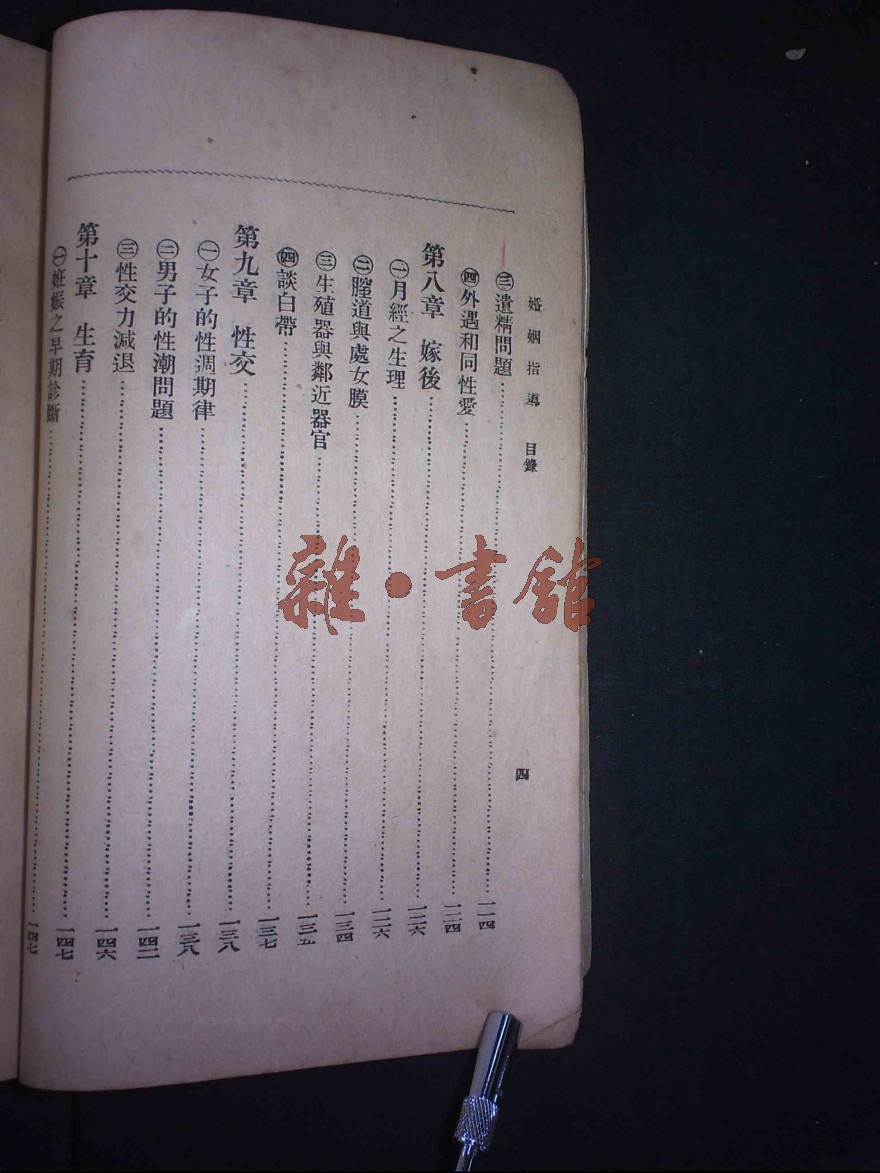 婚姻指導 目錄 四
㊂遺精問題……一一四
㊃外遇和同性愛……一二四
第八章 嫁後……一二六
㊀月經之生理……一二六
㊁膣道與處女膜……一三四
㊂生殖器與鄰近器官……一三五
㊃談白帶……一三七
第九章 性交……一三八
㊀女子的性週期律……一三八
㊁男子的性潮問題……一四二
㊂性交力減退……一四六
第十章 生育……一四七
㊀妊娠之早期診斷……一四七
雜·書館